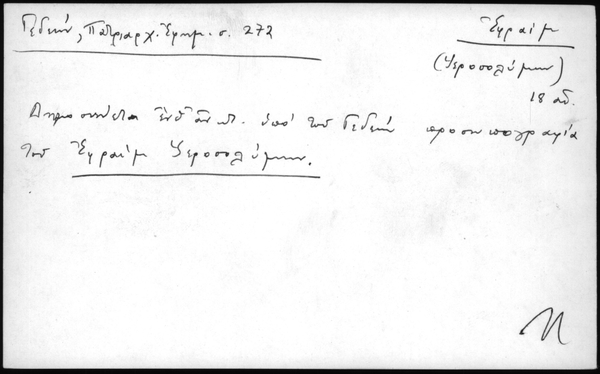 Γεδεών, Πατριαρχ. Ἐφημ. σ. 272
Ἐφραὶμ
(Ἱεροσολύμων)
18 αἰ.
Δημοσιεύεται ὑπὸ τοῦ Γεδεών προσωπογραφία
τοῦ Ἐφραὶμ Ἱεροσολύμων.